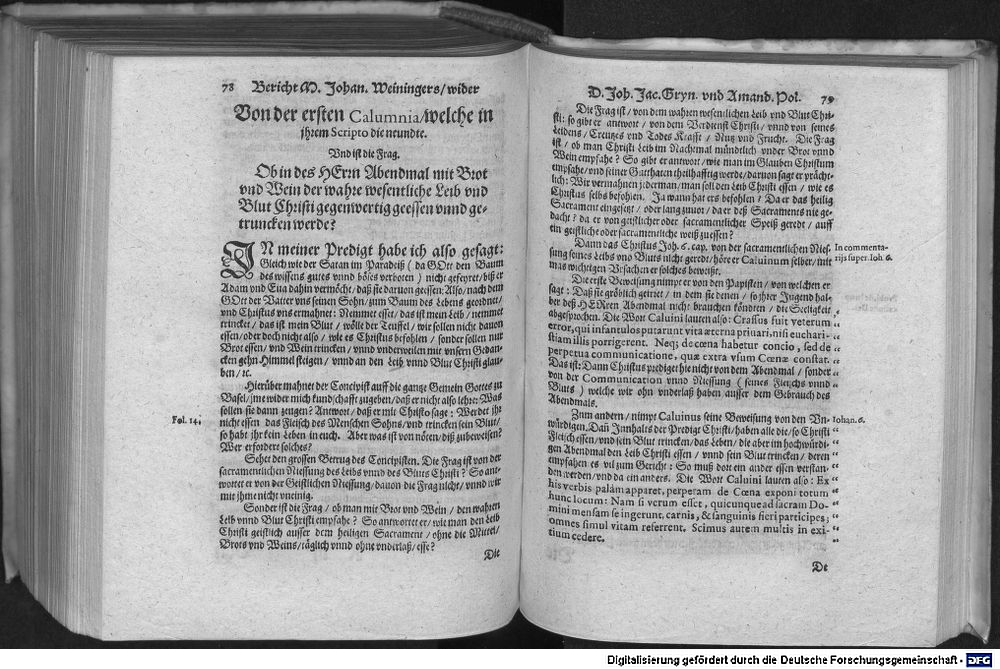 78 Bericht M. Johan. Weiningers/ wider
Von der ersten Calumnia/ welche in
ihrem Scripto die neundte.
Vnd ist die Frag.
Ob in des HErrn Abendmal mit Brot
vnd Wein der wahre wesentliche Leib vnd
Blut Christi gegenwertig geessen vnnd ge-
truncken werde?
IN meiner Predigt habe ich also gesagt:
Gleich wie der Satan im Paradeiß ( da GOtt den Baum
des wissens gutes vnnd böses verboten ) nicht gefeyret/ biß er
Adam vnd Eua dahin vermocht/ daß sie daruon geessen: Also/ nach dem
GOtt der Vatter vns seinen Sohn/ zum Baum des Lebens geordnet/
vnd Christus vns ermahnet: Nemmet esset/ das ist mein Leib/ nemmet
trincket/ das ist mein Blut/ wölle der Teuffel/ wir sollen nicht dauon
essen/ oder doch nicht also/ wie es Christus befohlen/ sonder sollen nur
Brot essen/ vnd Wein trincken/ vnnd vnderweilen mit vnsern Gedan-
cken gehn Himmel steigen/ vnnd an den Leib vnnd Blut Christi glau-
ben/ ꝛc.
Hierüber mahnet der Concipist auff die gantze Gemein Gottes zu
Basel/ sme wider mich kundschafft zugeben/ daß er nicht also lehre: Was
sollen sie dann zeugen? Antwort/ daß er mit Christo sage: Werdet ihr
Fol. 14.
nicht essen das Fleisch des Menschen Sohns/ vnd trincken sein Blut/
so habt ihr kein Leben in euch. Aber was ist von nöten/ diß zubeweisen?
Wer erfordere solches?
Sehet den grossen Betrug des Concipisten. Die Frag ist von der
sacramentlichen Niessung des Leibs vnnd des Bluts Christi? So ant-
wortet er von der Geistlichen Niessung/ dauon die Frag nicht/ vnnd wir
mit ihme nicht vneinig.
Sonder ist die Frag/ ob man mit Brot vnd Wein/ den wahren
Leib vnnd Blut Christi empfahe? So antwortet er/ wie man den Leib
Christi geistlich ausser dem heiligen Sacrament/ ohne die Mittel/
Brots vnd Weins/ täglich vnnd ohne vnderlaß/ esse?
Die
D. Joh. Jac. Gryn. vnd Amand. Pol. 79
Die Frag ist/ von dem wahren wesentlichen Leib vnd Blut Chri-
sti: so gibt er antwort/ von dem Verdienst Christi/ vnnd von seines
Leidens/ Creutzes vnd Todes Krafft/ Nutz vnd Frucht. Die Frag
ist/ ob man Christi Leib im Nachtmal mündtlich vnder Brot vnnd
Wein empfahe? So gibt er antwort/ wie man im Glauben Christum
empfahe/ vnd seiner Gutthaten theilhafftig werde/ daruon sage er prächt-
lich: Wir vermahnen jederman/ man soll den Leib Christi essen/ wie es
Christus selbs befohlen. Ja wann hat ers befohlen? Da er das heilig
Sacrament eingesetzt/ oder lang zuuor/ da er deß Sacraments nie ge-
dacht? da er von geistlicher oder sacramentlicher Speiß geredt/ auff
ein geistliche oder sacramentliche weiß zuessen?
Dann das Christus Joh. 6. cap. von der sacramentlichen Nies-
In commenta-
sung seines Leibs vnd Bluts nicht geredt/ höret er Caluinum selber/ mit
rijs super. Ioh. 6.
was wichtigen Vrsachen er solches beweißt.
Die erste Beweisung nimpt er von den Papisten/ von welchen er
sagt: Daß sie gröblich geirret/ in dem sie denen/ so ihrer Jugend hal-
ber deß HERren Abendmal nicht brauchen köndten/ die Seeligkeit
abgesprochen. Die Wort Caluini lauten also: Crassus fuit veterum
error, qui infantulos putarunt vita æterna priuari, nisi euchari-
stiam illis porrigerent. Neq; de cœna habetur concio, sed de
perpetua communicatione, quæ extra vsum Cœnæ constat.
Das ist: Dann Christus prediget hie nicht von dem Abendmal/ sonder
von der Communication vnnd Niessung ( seines Fleischs vnnd
Bluts ) welche wir ohn vnderlaß haben ausser dem Gebrauch des
Abendmals.
Zum andern/ nimpt Caluinus seine Beweisung von den Vn-
Iohan. 6.
würdigen. Dañ Innhalts der Predig Christi/ haben alle die/ so Christi
Fleisch essen/ vnd sein Blut trincken/ das Leben/ die aber im hochwürdi-
gen Abendmal den Leib Christi essen/ vnnd sein Blut trincken/ deren
empfahen es vil zum Gericht: So muß dort ein ander essen verstan-
den werden/ vnd da ein anders. Die Wort Caluini lauten also: Ex
his verbis palàm apparet, perperam de Cœna exponi totum
hunc locum: Nam si verum esset, quicunque ad sacram Do-
mini mensam se ingerunt, carnis, & sanguinis fieri participes,
omnes simul vitam referrent. Scimus autem multis in exi-
tium cedere.
De
Digitalisierung gefördert durch die Deutsche Forschungsgemeinschaft - DFG